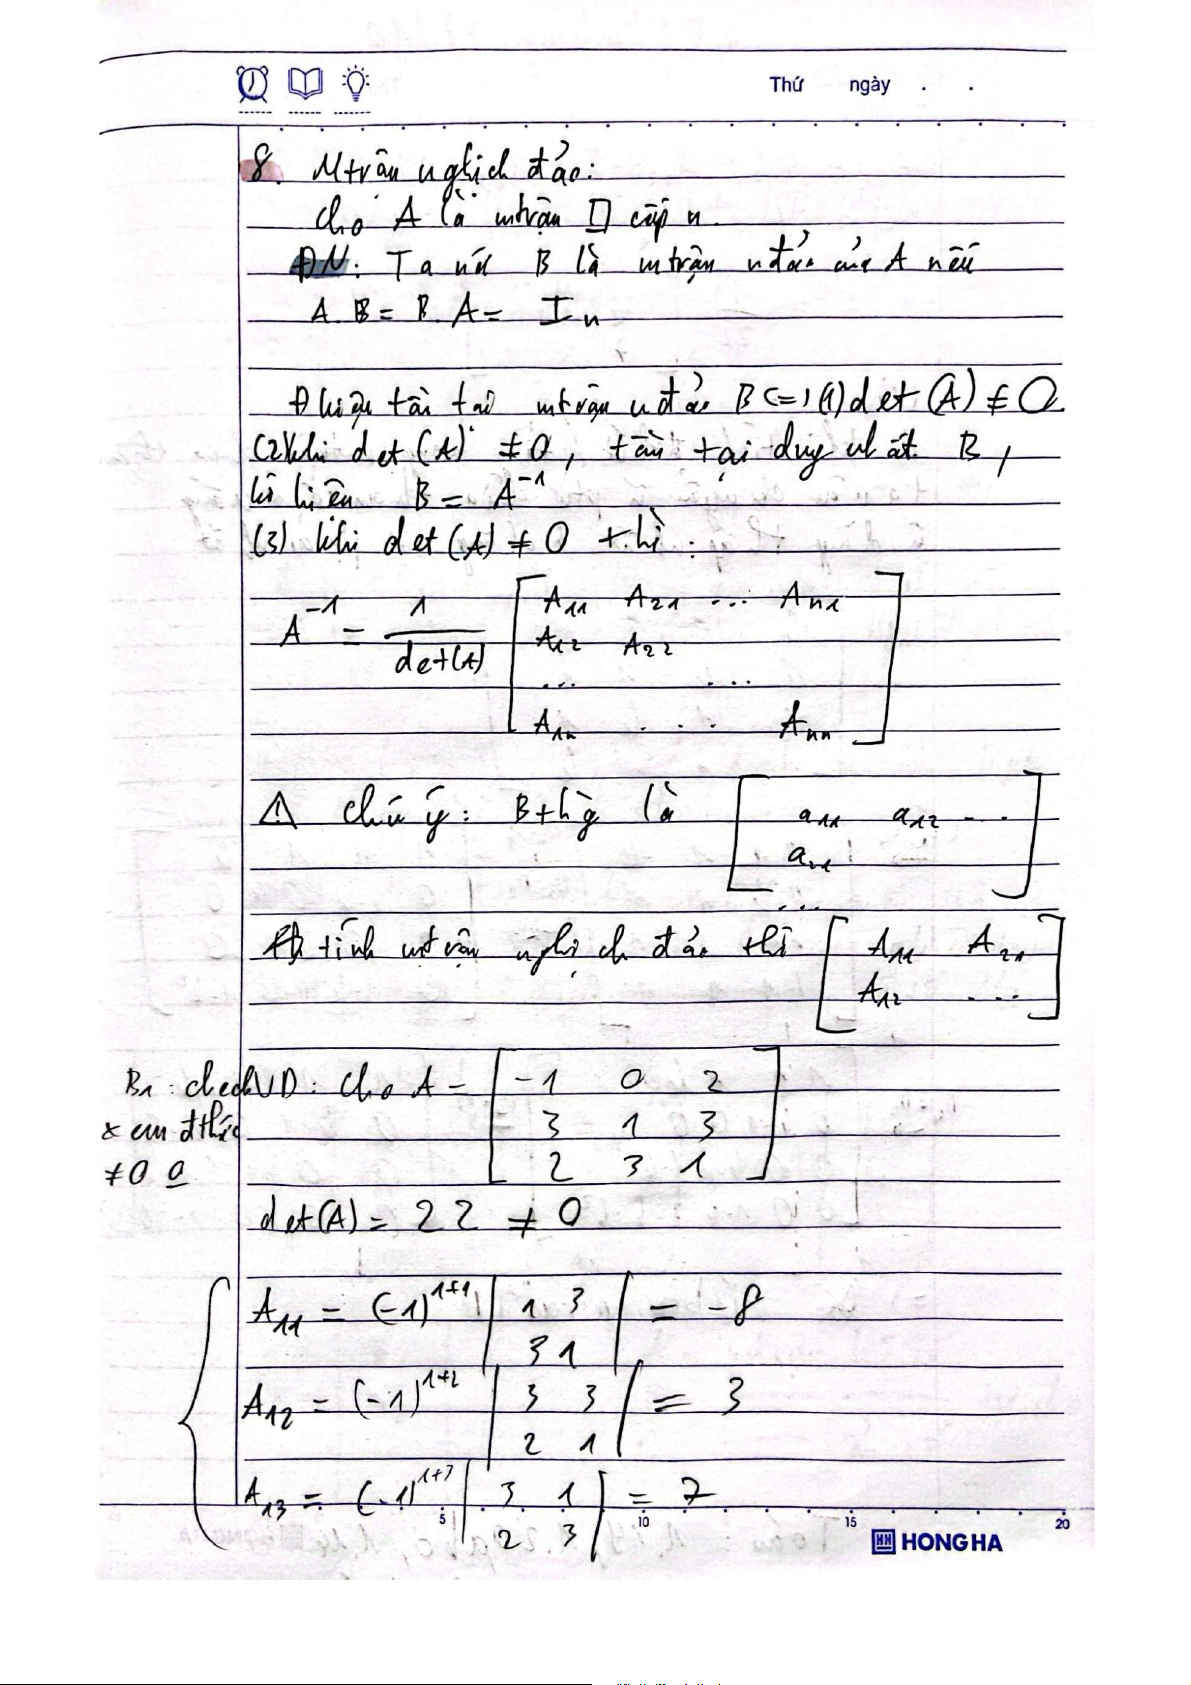 Thứ ngày . .
8. Mtrận nghịch đảo:
Cho A là mtrận □ cấp n.
ĐN: Ta nói B là mtrận nđảo của A nếu
A.B = B.A = In
Đkiện tồn tại mtrận nđảo B <=> (1) det(A) ≠ 0
(2) khi det(A) ≠ 0, tồn tại duy nhất B,
kí hiệu B = A⁻¹
(3). Khi det(A) ≠ 0 thì:
A⁻¹ = 1/det(A) [ A11 A21 ... An1
A12 A22
... ...
A1n . . . Ann ]
⚠ Chú ý: Bthg là [ a11 a12 ...
a21
... ]
tính mtrận nghịch đảo thì [ A11 A21
A12 ... ]
B1: check
xem đthức
≠ 0 0
VD: Cho A = [ -1 0 2
3 1 3
2 3 1 ]
det(A) = 22 ≠ 0
A11 = (-1)^1+1 | 1 3
3 1 | = -8
A12 = (-1)^1+2 | 3 3
2 1 | = 3
A13 = (-1)^1+3 | 3 1
2 3 | = 7
5 10 15 20
HONG HA